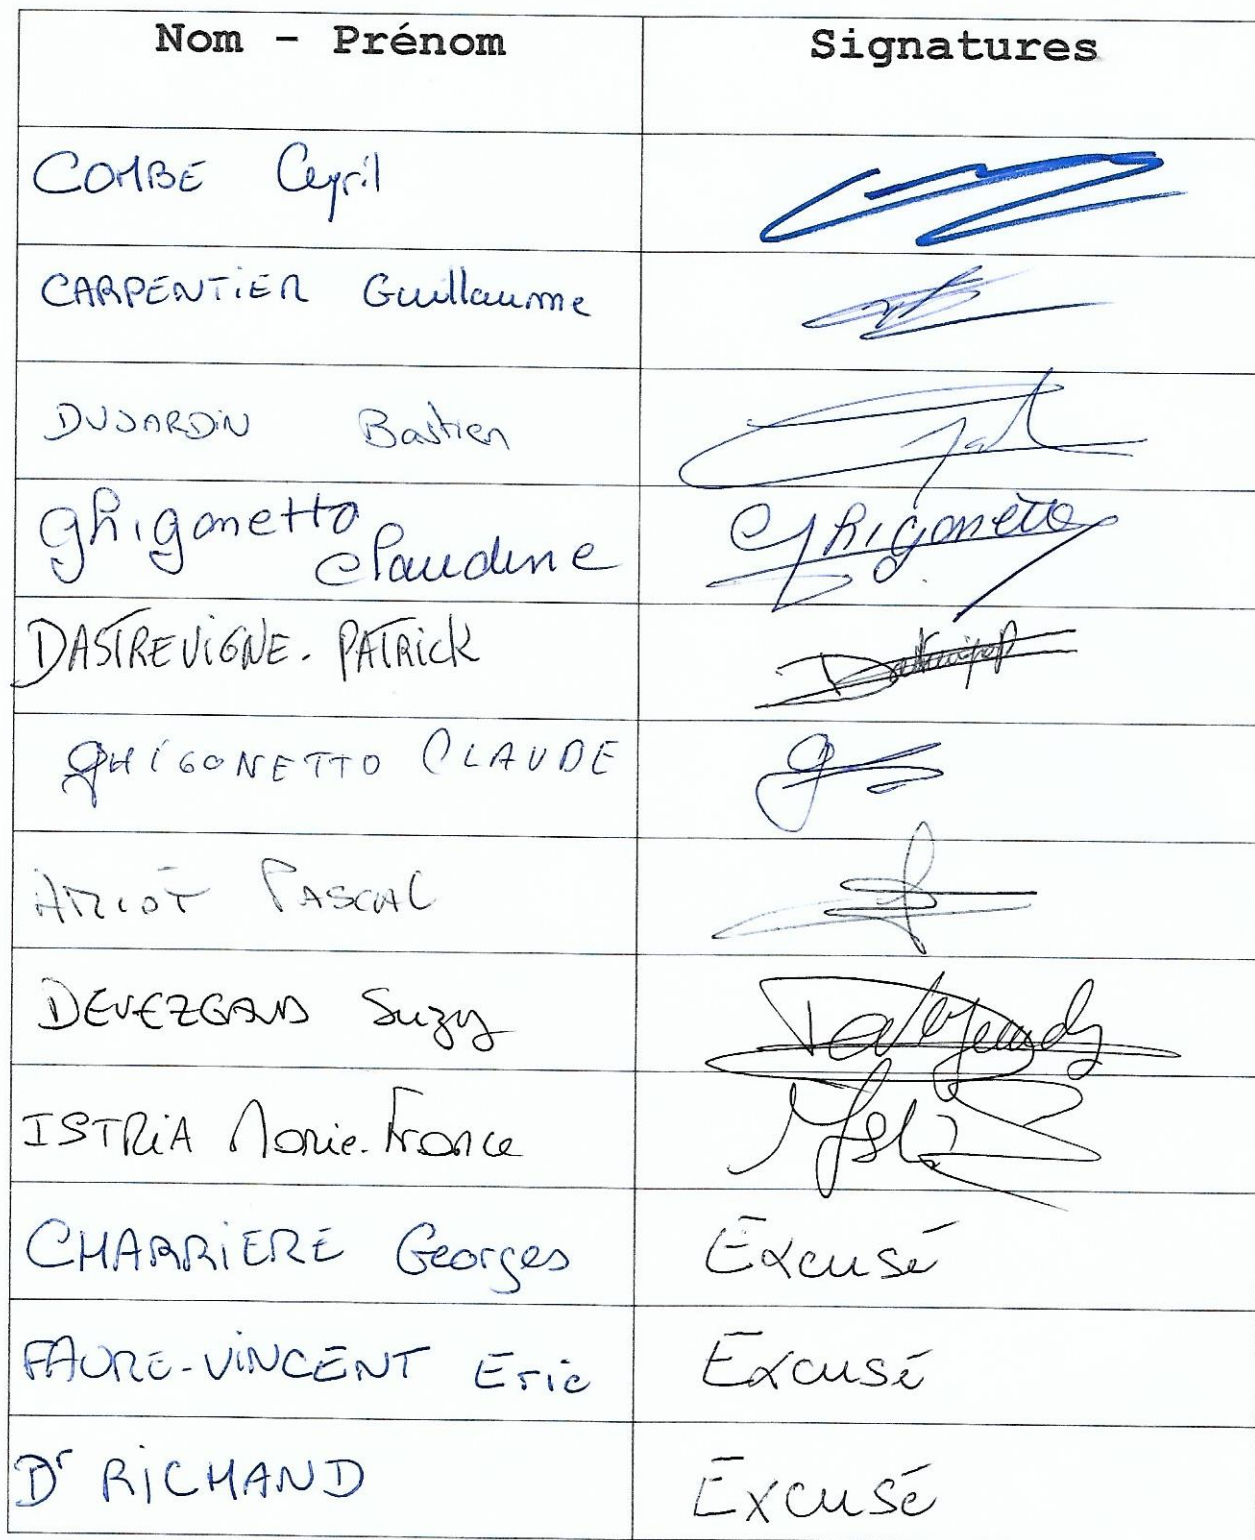 Nom - Prénom Signatures
COMBE Cyril
CARPENTIER Guillaume
DUJARDIN Bastien
Ghigonetto
Claudine Ghigonetto
DASTREVIGNE. PATRICK
GHIGONETTO CLAUDE
PASCAL
DEVEZEAUD Suzy
ISTRIA Marie-France
CHARRIERE Georges Excusé
FAURE-VINCENT Eric Excusé
Dr RICHAND Excusé